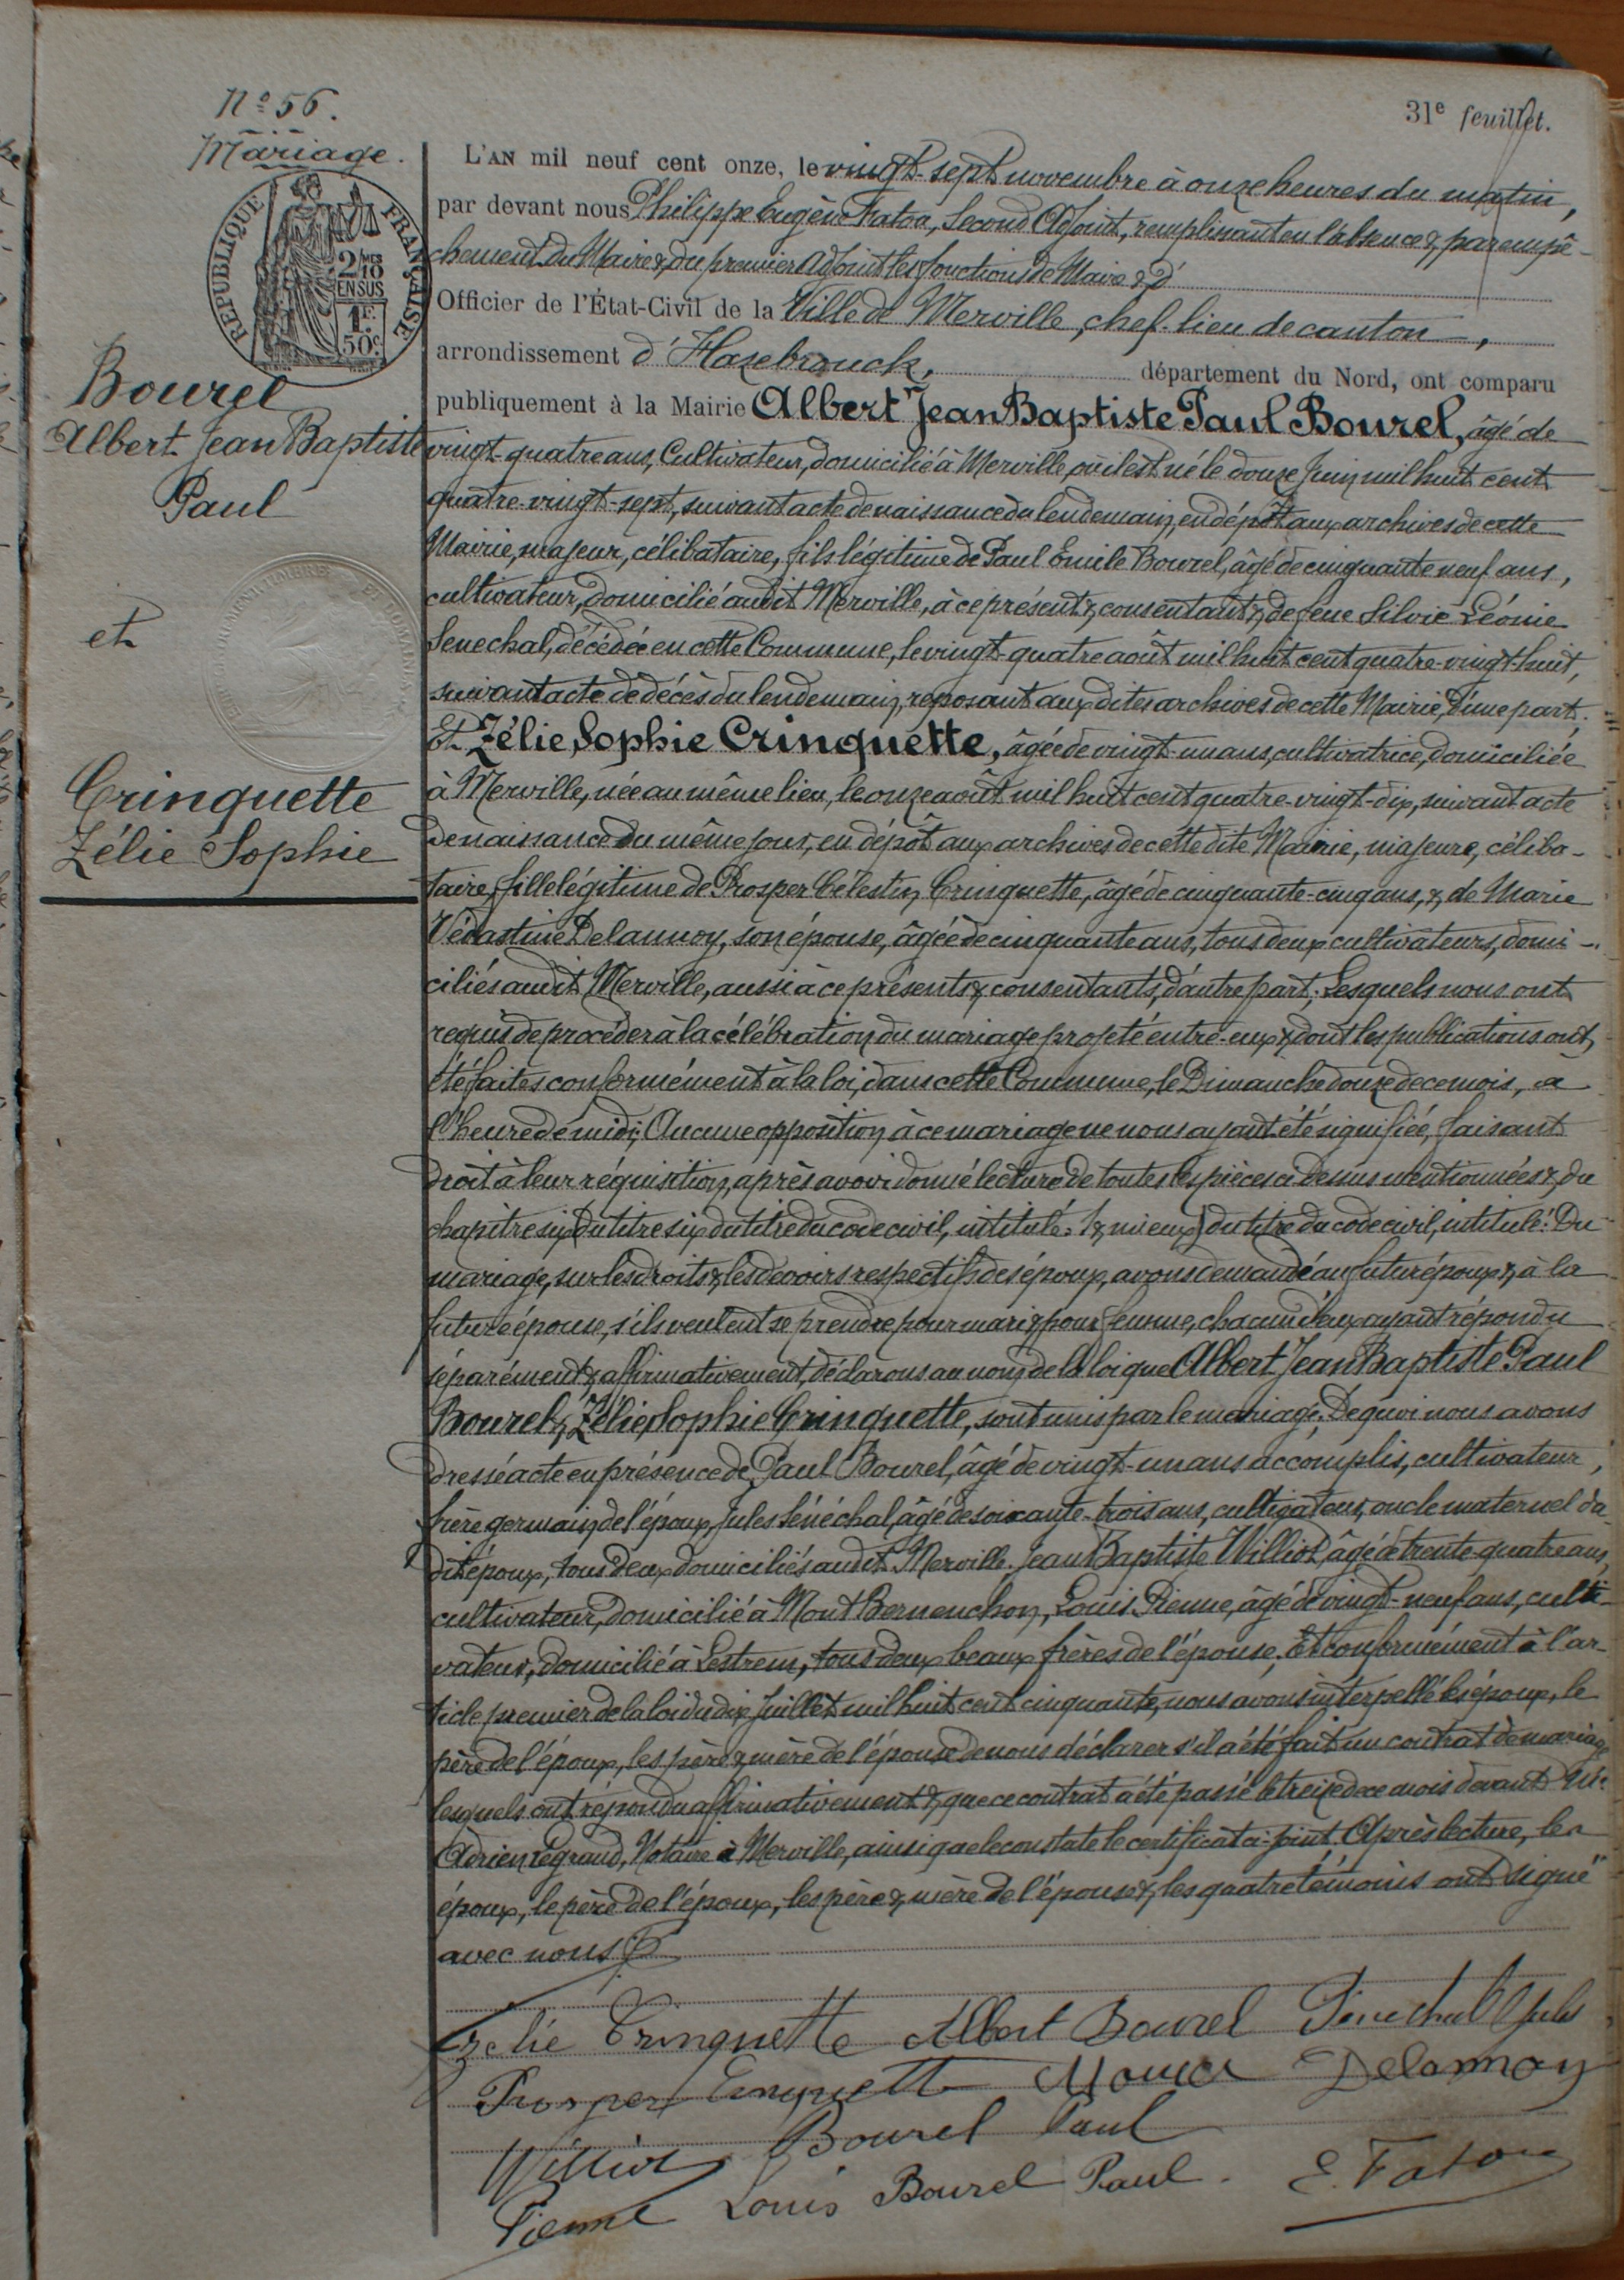 31e feuillet.
N° 56.
Mariage.
RÉPUBLIQUE FRANÇAISE
2/10 MES
EN SUS
1F.
50c.
Bourel
Albert Jean Baptiste
Paul
et
Crinquette
Zélie Sophie
L'AN mil neuf cent onze, le vingt-sept novembre à onze heures du matin,
par devant nous Philippe Eugène Fatou, Second Adjoint, remplissant en l'absence & par empê-
chement du Maire & du premier Adjoint les fonctions de Maire & d'
Officier de l'État-Civil de la Ville de Merville, chef-lieu de canton,
arrondissement d'Hazebrouck, département du Nord, ont comparu
publiquement à la Mairie Albert Jean Baptiste Paul Bourel, âgé de
vingt-quatre ans, Cultivateur, domicilié à Merville, où il est né le douze Juin mil huit cent
quatre-vingt-sept, suivant acte de naissance du lendemain, en dépôt aux archives de cette
Mairie, majeur, célibataire, fils légitime de Paul Emile Bourel, âgé de cinquante neuf ans,
cultivateur, domicilié audit Merville, à ce présent & consentant & de feue Silvie Léonie
Senechal, décédée en cette Commune, le vingt-quatre août mil huit cent quatre-vingt-huit,
suivant acte de décès du lendemain, reposant aux dites archives de cette Mairie, d'une part;
Et Zélie Sophie Crinquette, âgée de vingt-un ans, cultivatrice, domiciliée
à Merville, née au même lieu, le onze août mil huit cent quatre-vingt-dix, suivant acte
de naissance du même jour, en dépôt aux archives de cette dite Mairie, majeure, céliba-
taire, fille légitime de Prosper Célestin Crinquette, âgé de cinquante-cinq ans, & de Marie
Védastine Delannoy, son épouse, âgée de cinquante ans, tous deux cultivateurs, domi-
ciliés audit Merville, aussi à ce présents & consentants, d'autre part; Lesquels nous ont
requis de procéder à la célébration du mariage projeté entre eux & dont les publications ont
été faites conformément à la loi, dans cette Commune, le Dimanche douze de ce mois, à
l'heure de midi; Aucune opposition à ce mariage ne nous ayant été signifiée, faisant
droit à leur réquisition, après avoir donné lecture de toutes les pièces ci-dessus mentionnées & du
chapitre six (du titre six du titre du code civil, intitulé: & mieux) du titre du code civil, intitulé: Du
mariage, sur les droits & les devoirs respectifs des époux, avons demandé au futur époux & à la
future épouse, s'ils veulent se prendre pour mari & pour femme, chacun d'eux ayant répondu
séparément & affirmativement, déclarons au nom de la loi que Albert Jean Baptiste Paul
Bourel & Zélie Sophie Crinquette, sont unis par le mariage; De quoi nous avons
dressé acte en présence de Paul Bourel, âgé de vingt-un ans accomplis, cultivateur,
frère germain de l'époux, Jules Sénéchal, âgé de soixante-trois ans, cultivateur, oncle maternel du
dit époux, tous deux domiciliés audit Merville. Jean Baptiste Williot, âgé de trente-quatre ans,
cultivateur, domicilié à Mont Bernenchon, Louis Pienne, âgé de vingt-neuf ans, culti-
vateur, domicilié à Lestrem, tous deux beaux frères de l'épouse; Et conformément à l'ar-
ticle premier de la loi du dix Juillet mil huit cent cinquante, nous avons interpellé les époux, le
père de l'époux, les père & mère de l'épouse de nous déclarer s'il a été fait un contrat de mariage
lesquels ont répondu affirmativement & que ce contrat a été passé le treize de ce mois devant Me
Adrien Legrand, Notaire à Merville, ainsi que le constate le certificat ci-joint. Après lecture, les
époux, le père de l'époux, les père & mère de l'épouse & les quatre témoins ont signé
avec nous
Zelie Crinquette Albert Bourel Senechal Jules
Prosper Crinquette Marie Delannoy
Williot Bourel Paul
Pienne Louis Bourel Paul. E. Fatou